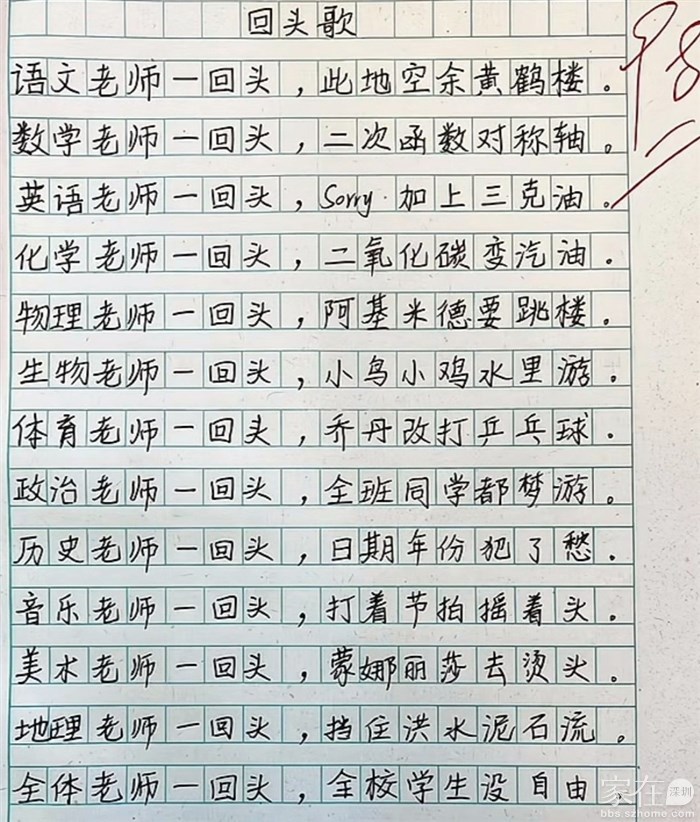 回头歌
98
语文老师一回头，此地空余黄鹤楼。
数学老师一回头，二次函数对称轴。
英语老师一回头，Sorry.加上三克油。
化学老师一回头，二氧化碳变汽油.
物理老师一回头，阿基米德要跳楼。
生物老师一回头，小鸟小鸡水里游。
体育老师一回头，乔丹改打乒乓球.
政治老师一回头，全班同学都梦游。
历史老师一回头，日期年份犯了愁.
音乐老师一回头，打着节拍摇着头.
美术老师一回头，蒙娜丽莎去烫头。
地理老师一回头，挡住洪水泥石流。
全体老师一回头，全校学生没自由。
家在深圳
bbs.szhome.com